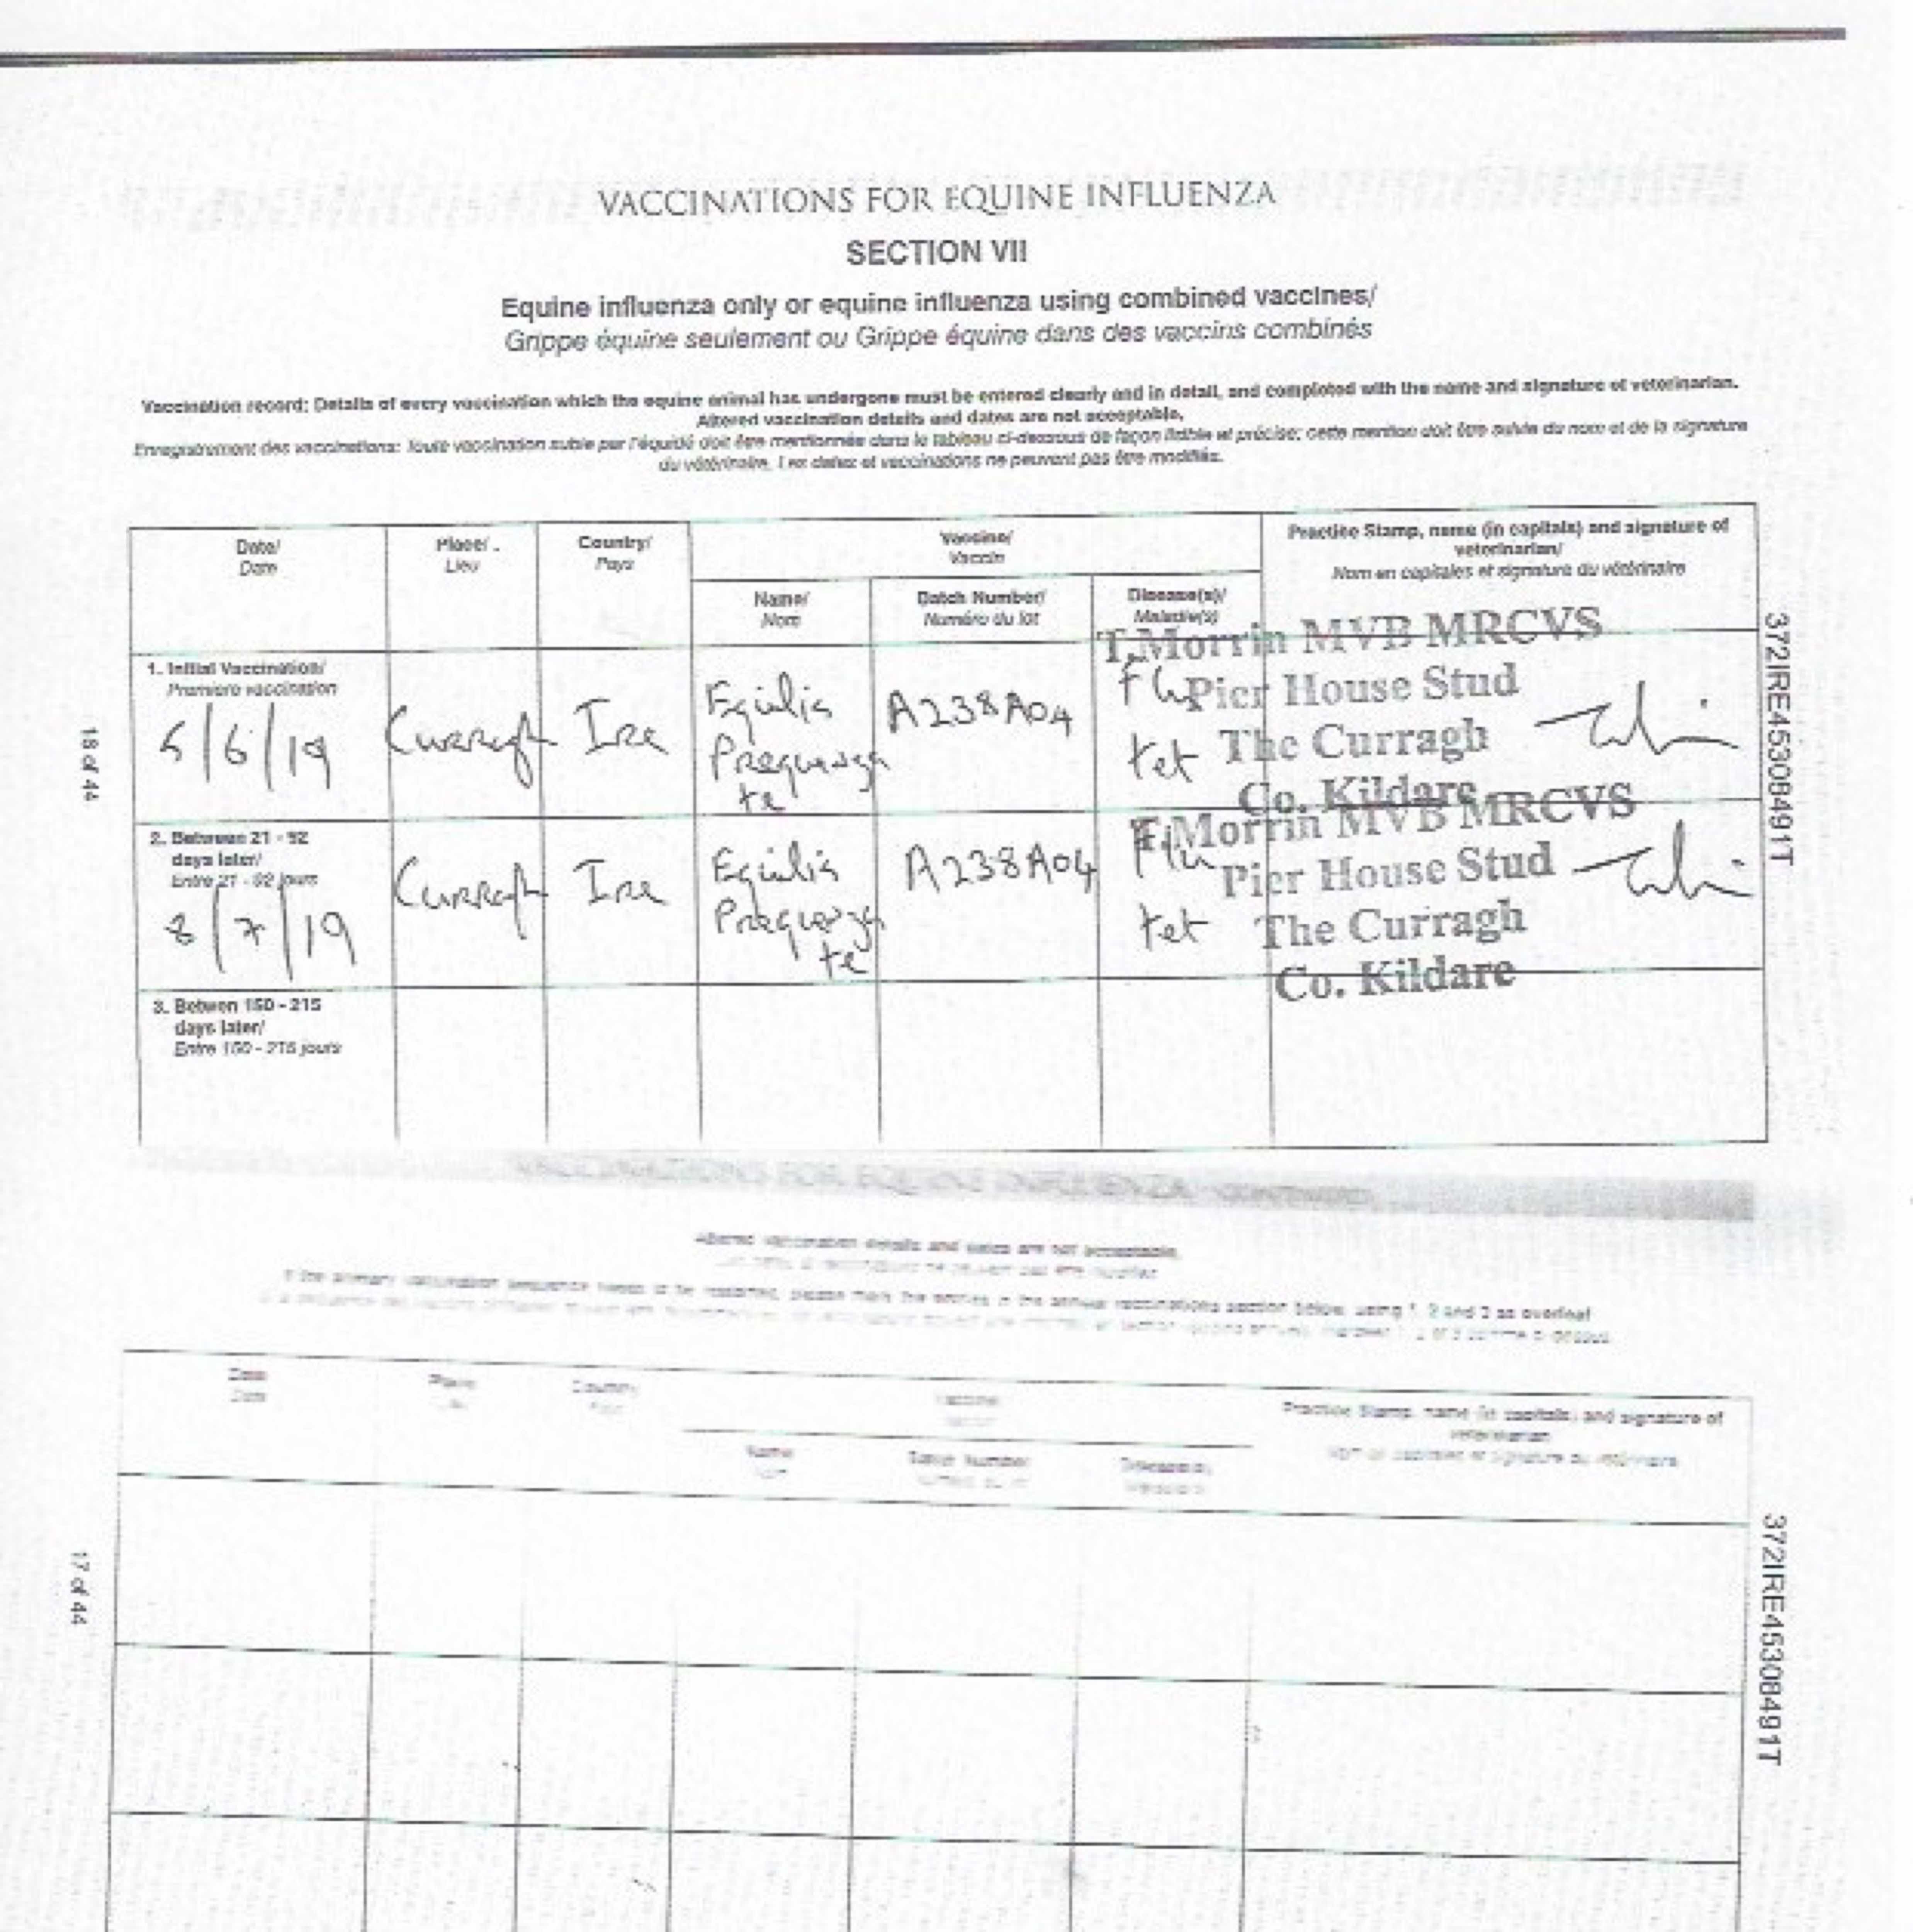 VACCINATIONS FOR EQUINE INFLUENZA
SECTION VII
Equine influenza only or equine influenza using combined vaccines/
Grippe équine seulement ou Grippe équine dans des vaccins combinés
Vaccination record: Details of every vaccination which the equine animal has undergone must be entered clearly and in detail, and completed with the name and signature of veterinarian.
Altered vaccination details and dates are not acceptable.
Enregistrement des vaccinations: Toute vaccination subie par l'équidé doit être mentionnée dans le tableau ci-dessous de façon lisible et précise; cette mention doit être suivie du nom et de la signature
du vétérinaire. Les dates et vaccinations ne peuvent pas être modifiés.
Date/ Place/ Country/ Vaccine/ Practice Stamp, name (in capitals) and signature of
Date Lieu Pays Vaccin veterinarian/
Nom en capitales et signature du vétérinaire
Name/ Batch Number/ Disease(s)/
Nom Numéro du lot Maladie(s)
1. Initial Vaccination/
Premiere vaccination
5/6/19 Curragh Ire Equilis A238A04 Flu
Prequenza tet
te
T.Morrin MVB MRCVS
Pier House Stud
The Curragh
Co. Kildare
2. Between 21 - 92
days later/
Entre 21 - 92 jours
8/7/19 Curragh Ire Equilis A238A04 Flu
Prequenza tet
te
T.Morrin MVB MRCVS
Pier House Stud
The Curragh
Co. Kildare
3. Betwen 150 - 215
days later/
Entre 150 - 215 jours
16 of 44
372IRE45308491T
VACCINATIONS FOR EQUINE INFLUENZA CONTINUED
Altered vaccination details and dates are not acceptable.
If the primary vaccination sequence needs to be restarted, please mark the entries in the annual vaccinations section below using 1, 2 and 3 as overleaf
Date Place Country Vaccine Practice Stamp, name (in capitals) and signature of
Date veterinarian
Name Batch Number Disease(s)
17 of 44
372IRE45308491T